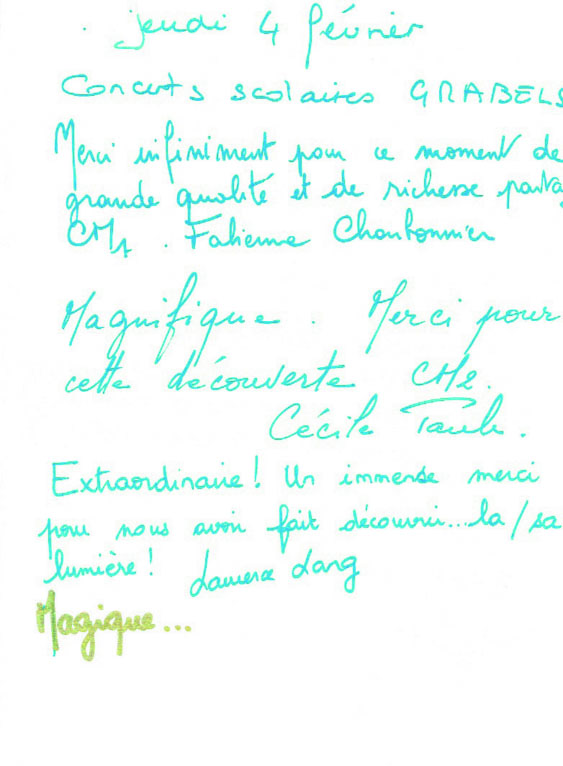 jeudi 4 février
Concerts scolaires GRABELS
Merci infiniment pour ce moment de
grande qualité et de richesse parta
CM1. Fabienne Charbonnier
Magnifique. Merci pour
cette découverte CM2.
Cécile
Extraordinaire! Un immense merci
pour nous avoir fait découvrir...la/sa
lumière! Laurence Lang
Magique...